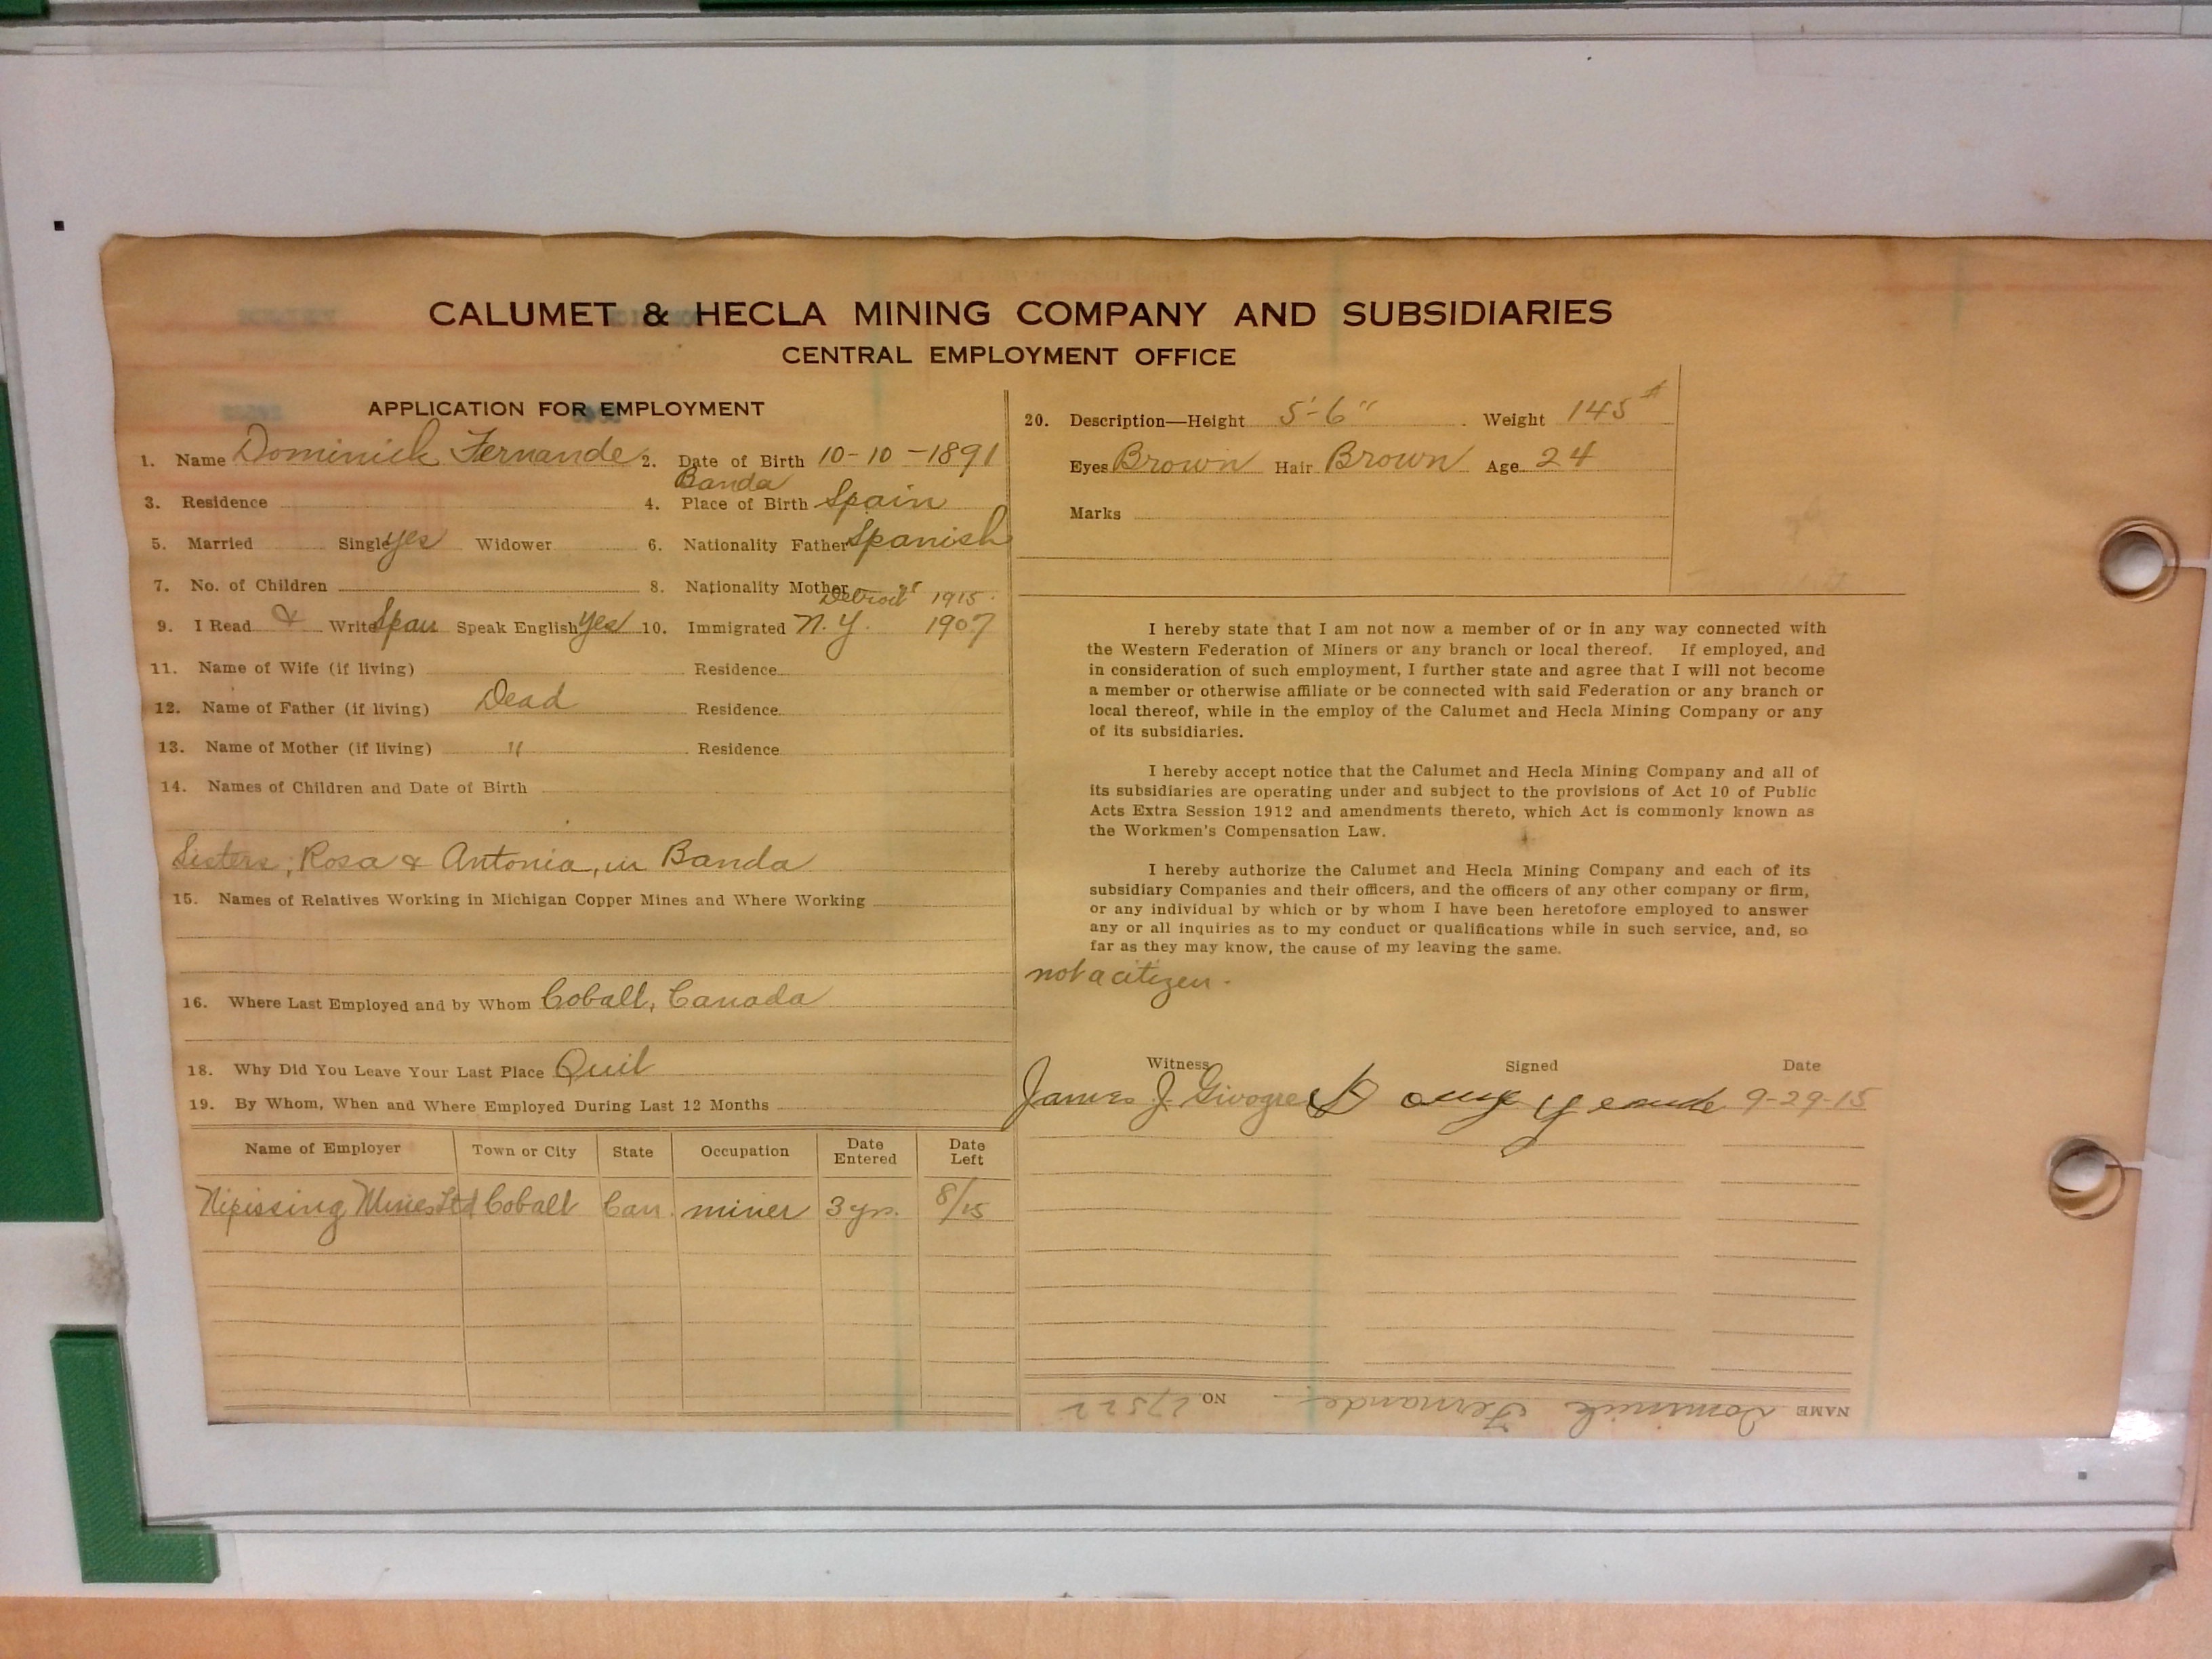 CALUMET & HECLA MINING COMPANY AND SUBSIDIARIES
CENTRAL EMPLOYMENT OFFICE
APPLICATION FOR EMPLOYMENT
1. Name Dominick Fernande 2. Date of Birth 10-10-1891
Banda
3. Residence 4. Place of Birth Spain
5. Married Single yes Widower 6. Nationality Father Spanish
7. No. of Children 8. Nationality Mother "
Detroit 1915
9. I Read & Write Span Speak English yes 10. Immigrated N.Y. 1907
11. Name of Wife (if living) Residence
12. Name of Father (if living) Dead Residence
13. Name of Mother (if living) " Residence
14. Names of Children and Date of Birth
Sisters; Rosa & Antonia, in Banda
15. Names of Relatives Working in Michigan Copper Mines and Where Working
16. Where Last Employed and by Whom Cobalt, Canada
18. Why Did You Leave Your Last Place Quit
19. By Whom, When and Where Employed During Last 12 Months
Name of Employer Town or City State Occupation Date Entered Date Left
Nipissing Mines Ltd Cobalt Can. miner 3 yrs. 8/15
20. Description—Height 5'-6" Weight 145#
Eyes Brown Hair Brown Age 24
Marks
I hereby state that I am not now a member of or in any way connected with
the Western Federation of Miners or any branch or local thereof. If employed, and
in consideration of such employment, I further state and agree that I will not become
a member or otherwise affiliate or be connected with said Federation or any branch or
local thereof, while in the employ of the Calumet and Hecla Mining Company or any
of its subsidiaries.
I hereby accept notice that the Calumet and Hecla Mining Company and all of
its subsidiaries are operating under and subject to the provisions of Act 10 of Public
Acts Extra Session 1912 and amendments thereto, which Act is commonly known as
the Workmen's Compensation Law.
I hereby authorize the Calumet and Hecla Mining Company and each of its
subsidiary Companies and their officers, and the officers of any other company or firm,
or any individual by which or by whom I have been heretofore employed to answer
any or all inquiries as to my conduct or qualifications while in such service, and, so
far as they may know, the cause of my leaving the same.
not a citizen.
Witness Signed Date
James J. 9-29-15
NAME Dominick Fernande NO 27522